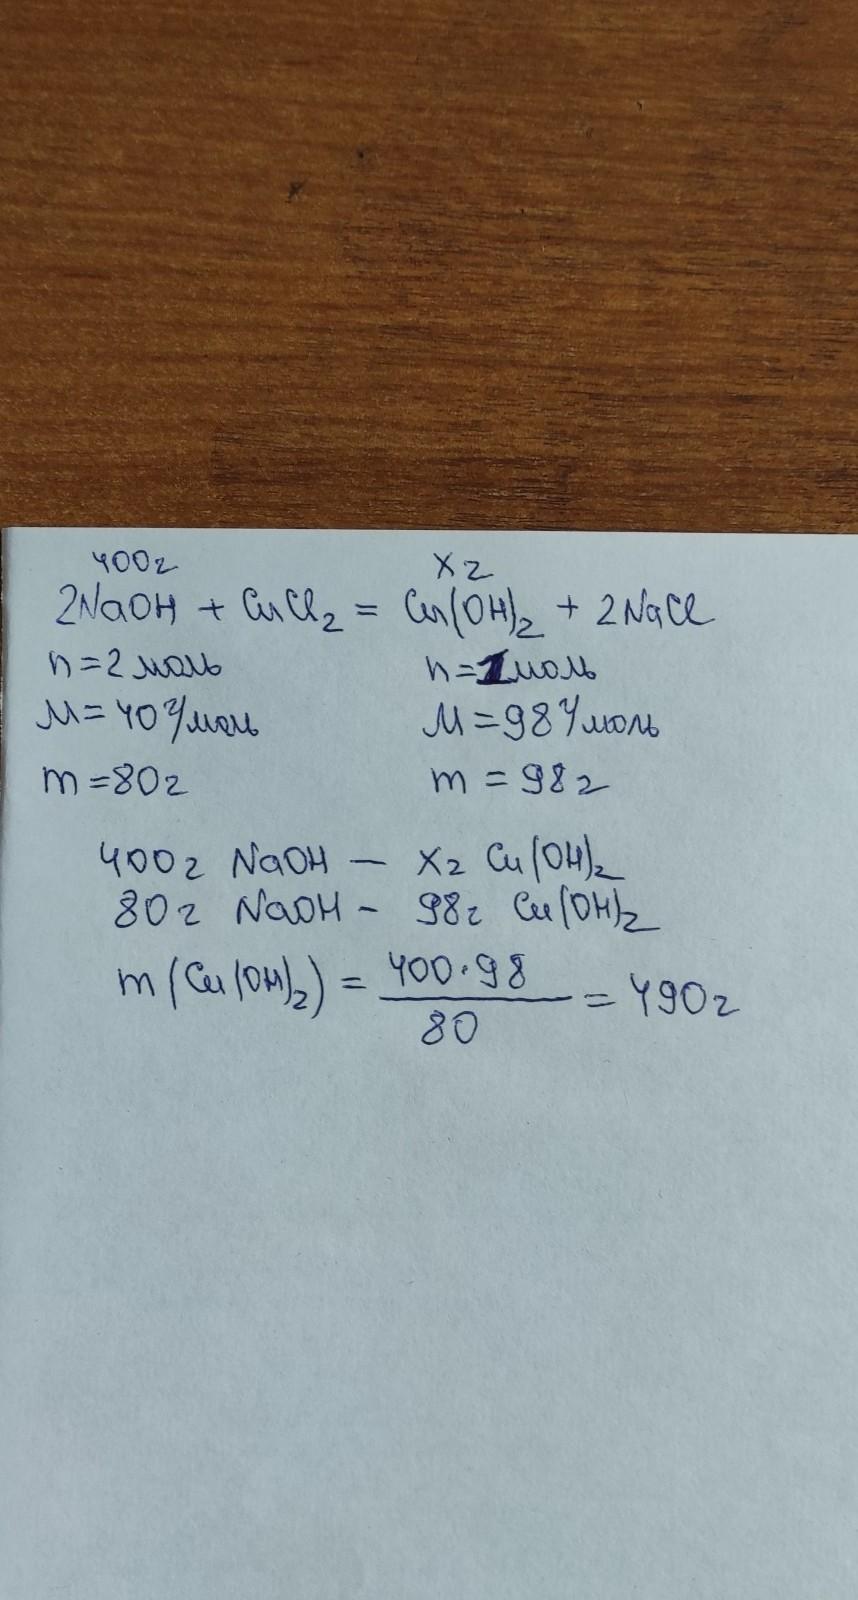 400г xг
2NaOH + CuCl₂ = Cu(OH)₂ + 2NaCl
n=2 моль n=1моль
M=40г/моль M=98г/моль
m=80г m = 98г
400г NaOH — xг Cu(OH)₂
80г NaOH - 98г Cu(OH)₂
m(Cu(OH)₂) = 400·98/80 = 490г